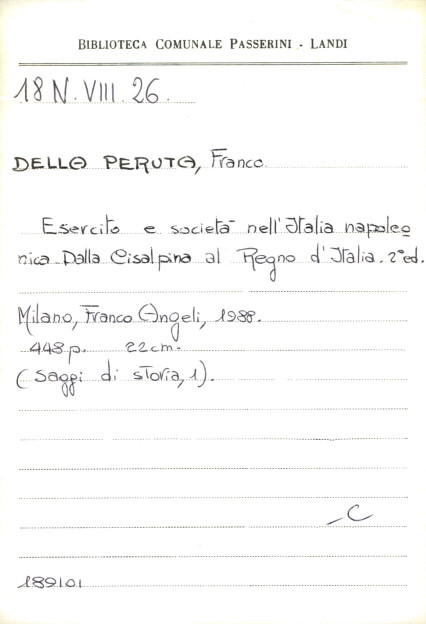 BIBLIOTECA COMUNALE PASSERINI - LANDI
18 N. VIII. 26.
DELLA PERUTA, Franco
Esercito e società nell'Italia napoleo
nica Dalla Cisalpina al Regno d'Italia. 2ª ed.
Milano, Franco Angeli, 1988.
448 p. 22 cm.
(Saggi di storia, 1).
C
189101